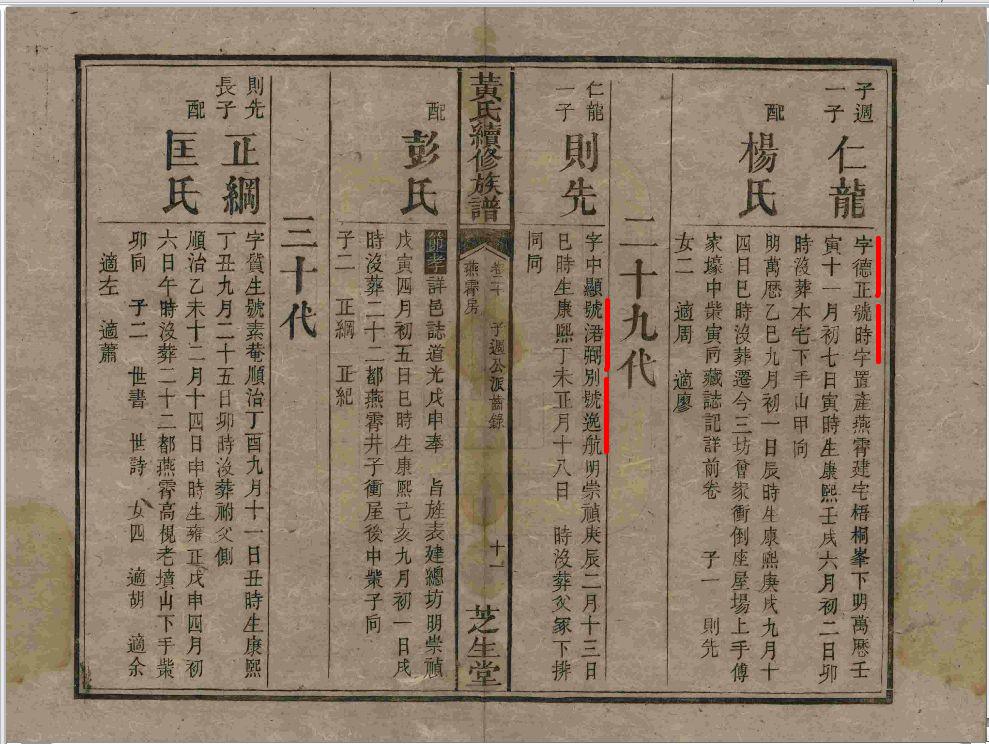 子週
一子
仁龍
字德正號時宇置產燕霄建宅梧桐峯下明萬曆壬
寅十一月初七日寅時生康熙壬戌六月初二日卯
時沒葬本宅下手山甲向
配
楊氏
明萬曆乙巳九月初一日辰時生康熙庚戌九月十
四日巳時沒葬遷今三坊會家衝倒座屋場上手傅
家壕中柴寅向藏誌記詳前卷 子一 則先
女二 適周 適廖
二十九代
仁龍
一子
則先
字中顯號涒鄰別號逸航明崇禎庚辰二月十三日
巳時生康熙丁未正月十八日 時沒葬父冢下排
同向
黃氏續修族譜
卷二十 子週公派齒錄
燕霄房
十一
芝生堂
配
彭氏
節孝詳邑誌道光戊申奉 旨旌表建總坊明崇禎
戊寅四月初五日巳時生康熙己亥九月初一日戌
時沒葬二十二都燕霄井子衝屋後中柴子向
子二 正綱 正紀
三十代
則先
長子
正綱
字質生號素菴順治丁酉九月十一日丑時生康熙
丁丑九月二十五日卯時沒葬祔父側
配
匡氏
順治乙未十二月十四日申時生雍正戊申四月初
六日午時沒葬二十二都燕霄高梘老墳山下手柴
卯向 子二 世書 世詩 女四 適胡 適余
適左 適蕭